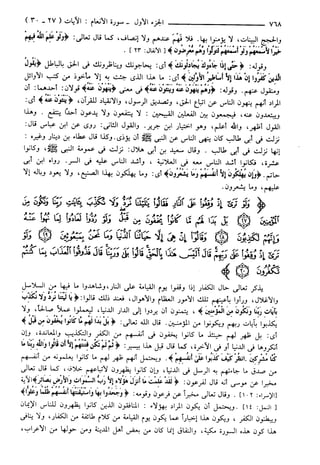 ٧٦٨ الجزء الأول - سورة الأنعام : الآيات ( ٢٧ - ٣٠ )
والحجج البينات، لا يؤمنوا بها. فلا فهم عندهم ولا إنصاف، كما قال تعالى: ﴿ وَلَوْ عَلِمَ اللَّهُ فِيهِمْ
خَيْرًا لَأَسْمَعَهُمْ وَلَوْ أَسْمَعَهُمْ لَتَوَلَّوْا وَهُمْ مُعْرِضُونَ ﴾ [ الأنفال : ٢٣ ] .
وقوله: ﴿ حَتَّى إِذَا جَاءُوكَ يُجَادِلُونَكَ ﴾ أي: يحاجونك ويناظرونك في الحق بالباطل ﴿ يَقُولُ
الَّذِينَ كَفَرُوا إِنْ هَذَا إِلَّا أَسَاطِيرُ الْأَوَّلِينَ ﴾ أي: ما هذا الذي جئت به إلا مأخوذ من كتب الأوائل
ومنقول عنهم. وقوله: ﴿ وَهُمْ يَنْهَوْنَ عَنْهُ وَيَنْأَوْنَ عَنْهُ ﴾ في معنى ﴿ يَنْهَوْنَ عَنْهُ ﴾ قولان: أحدهما: أن
المراد أنهم ينهون الناس عن اتباع الحق، وتصديق الرسول، والانقياد للقرآن، ﴿ وَيَنْأَوْنَ عَنْهُ ﴾ أي:
ويبتعدون عنه، فيجمعون بين الفعلين القبيحين : لا ينتفعون ولا يدعون أحدًا ينتفع . وهذا
القول أظهر، والله أعلم، وهو اختيار ابن جرير. والقول الثاني: روى عن ابن عباس قال:
نزلت في أبي طالب كان ينهى الناس عن النبي ﷺ أن يؤذى. وكذا قال عطاء بن دينار وغيره :
إنها نزلت في أبي طالب . وقال سعيد بن أبي هلال: نزلت في عمومة النبي ﷺ، وكانوا
عشرة، فكانوا أشد الناس معه في العلانية ، وأشد الناس عليه في السر. رواه ابن أبي
حاتم. ﴿ وَإِنْ يُهْلِكُونَ إِلَّا أَنْفُسَهُمْ وَمَا يَشْعُرُونَ ﴾ أي: وما يهلكون بهذا الصنيع، ولا يعود وباله إلا
عليهم، وما يشعرون.
وَلَوْ تَرَى إِذْ وُقِفُوا عَلَى النَّارِ فَقَالُوا يَا لَيْتَنَا نُرَدُّ وَلَا نُكَذِّبَ بِآيَاتِ رَبِّنَا وَنَكُونَ
مِنَ الْمُؤْمِنِينَ ﴿٢٧﴾ بَلْ بَدَا لَهُمْ مَا كَانُوا يُخْفُونَ مِنْ قَبْلُ وَلَوْ رُدُّوا لَعَادُوا لِمَا نُهُوا عَنْهُ
وَإِنَّهُمْ لَكَاذِبُونَ ﴿٢٨﴾ وَقَالُوا إِنْ هِيَ إِلَّا حَيَاتُنَا الدُّنْيَا وَمَا نَحْنُ بِمَبْعُوثِينَ ﴿٢٩﴾ وَلَوْ تَرَى إِذْ
وُقِفُوا عَلَى رَبِّهِمْ قَالَ أَلَيْسَ هَذَا بِالْحَقِّ قَالُوا بَلَى وَرَبِّنَا قَالَ فَذُوقُوا الْعَذَابَ بِمَا كُنْتُمْ
تَكْفُرُونَ ﴿٣٠﴾
يذكر تعالى حال الكفار إذا وقفوا يوم القيامة على النار، وشاهدوا ما فيها من السلاسل
والأغلال، ورأوا بأعينهم تلك الأمور العظام والأهوال، فعند ذلك قالوا: ﴿ يَا لَيْتَنَا نُرَدُّ وَلَا نُكَذِّبَ
بِآيَاتِ رَبِّنَا وَنَكُونَ مِنَ الْمُؤْمِنِينَ ﴾ ، يتمنون أن يردوا إلى الدار الدنيا، ليعملوا عملًا صالحًا، ولا
يكذبوا بآيات ربهم ويكونوا من المؤمنين. قال الله تعالى: ﴿ بَلْ بَدَا لَهُمْ مَا كَانُوا يُخْفُونَ مِنْ قَبْلُ ﴾
أي: بل ظهر لهم حينئذ ما كانوا يخفون في أنفسهم من الكفر والتكذيب والمعاندة، وإن
أنكروها في الدنيا أو في الآخرة، كما قال قبل هذا بيسير: ﴿ ثُمَّ لَمْ تَكُنْ فِتْنَتُهُمْ إِلَّا أَنْ قَالُوا وَاللَّهِ رَبِّنَا مَا
كُنَّا مُشْرِكِينَ . انْظُرْ كَيْفَ كَذَبُوا عَلَى أَنْفُسِهِمْ ﴾ . ويحتمل أنهم ظهر لهم ما كانوا يعلمونه من أنفسهم
من صدق ما جاءتهم به الرسل في الدنيا، وإن كانوا يظهرون لأتباعهم خلافه، كما قال تعالى
مخبرا عن موسى أنه قال لفرعون: ﴿ لَقَدْ عَلِمْتَ مَا أَنْزَلَ هَؤُلَاءِ إِلَّا رَبُّ السَّمَوَاتِ وَالْأَرْضِ بَصَائِرَ ﴾ الآية
[الإسراء: ١٠٢] . وقال تعالى مخبرا عن فرعون وقومه: ﴿ وَجَحَدُوا بِهَا وَاسْتَيْقَنَتْهَا أَنْفُسُهُمْ ظُلْمًا وَعُلُوًّا ﴾
[ النمل: ١٤ ] . ويحتمل أن يكون المراد بهؤلاء : المنافقون الذين كانوا يظهرون للناس الإيمان
ويبطنون الكفر ، ويكون هذا إخبارا عما يكون يوم القيامة من كلام طائفة من الكفار، ولا ينافي
هذا كون هذه السورة مكية، والنفاق إنما كان من بعض أهل المدينة ومن حولها من الأعراب،